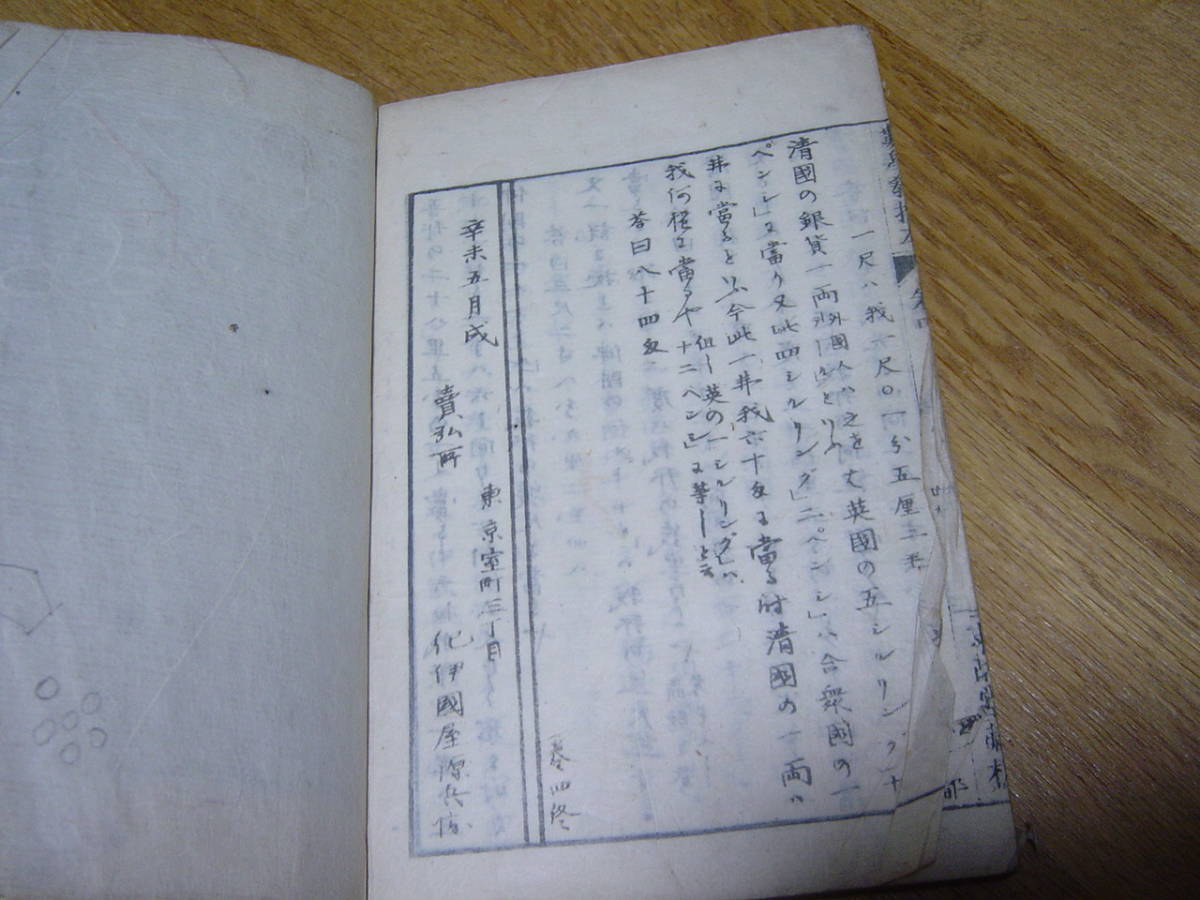 一尺ハ我一尺〇一分五厘三毛
清國の銀貨一両外國人ハ之を
英國の五シルリング十
ペンシ」に當り又此四シルリング」二ペンシ」ハ合衆國の一
弗に當ると云今此一弗我六十匁に當る時清國の一両ハ
我何程に當るや
但し英の一シルリング」ハ
十二ペンシ」に等しと云
答曰八十四匁
巻四終
辛未五月成
東京室町三丁目
賣弘所
紀伊國屋源兵衛